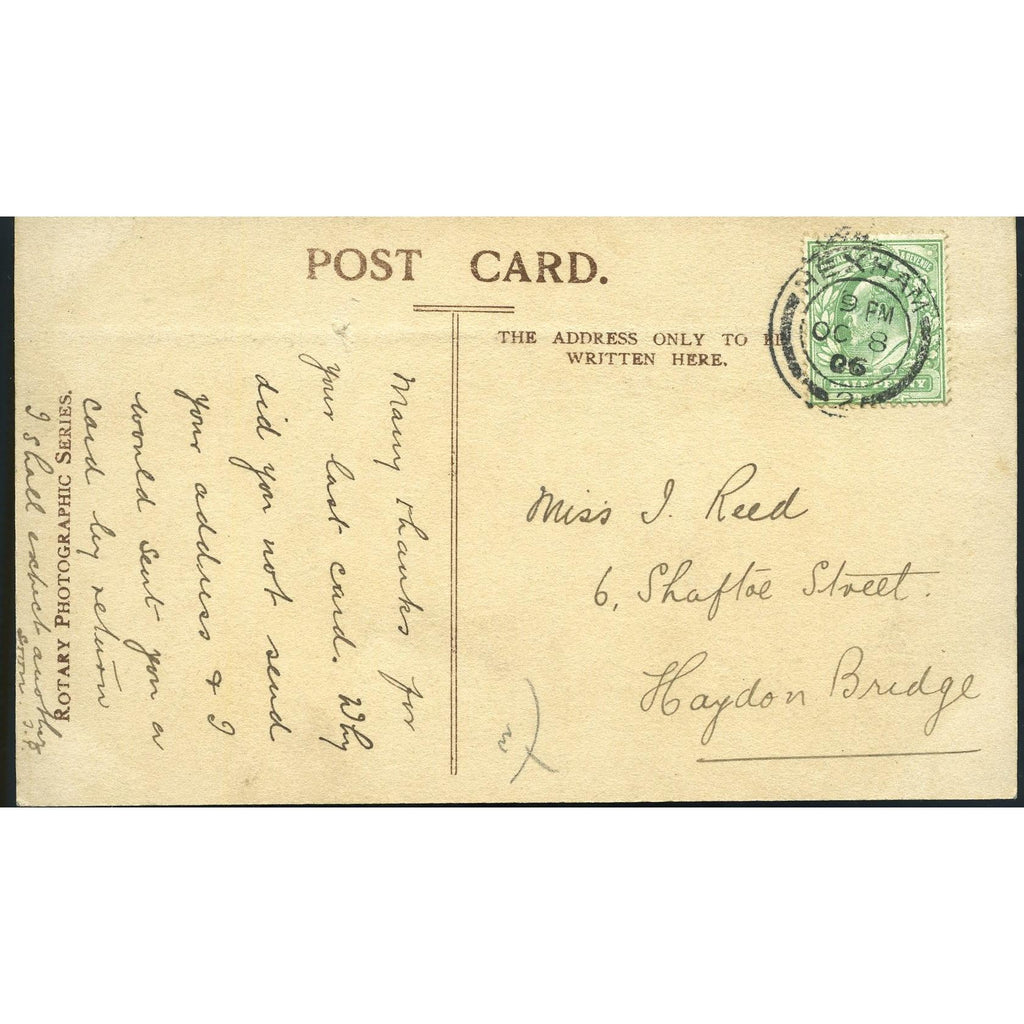 POST CARD.
THE ADDRESS ONLY TO BE
WRITTEN HERE.
POSTAGE & REVENUE
HEXHAM
9 PM
OC 8
06
HALF PENNY
Many thanks for
your last card. Why
did you not send
your address & I
would sent you a
card by return
I shall expect another
soon
ROTARY PHOTOGRAPHIC SERIES.
Miss J. Reed
6, Shaftoe Street.
Haydon Bridge